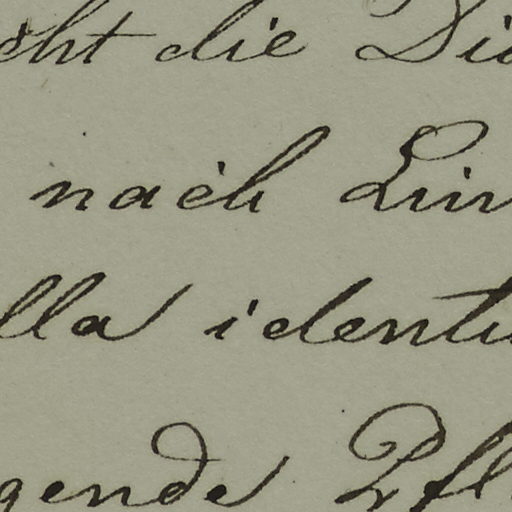 cht die Di
nach Lin
lla identi
gende Pfl